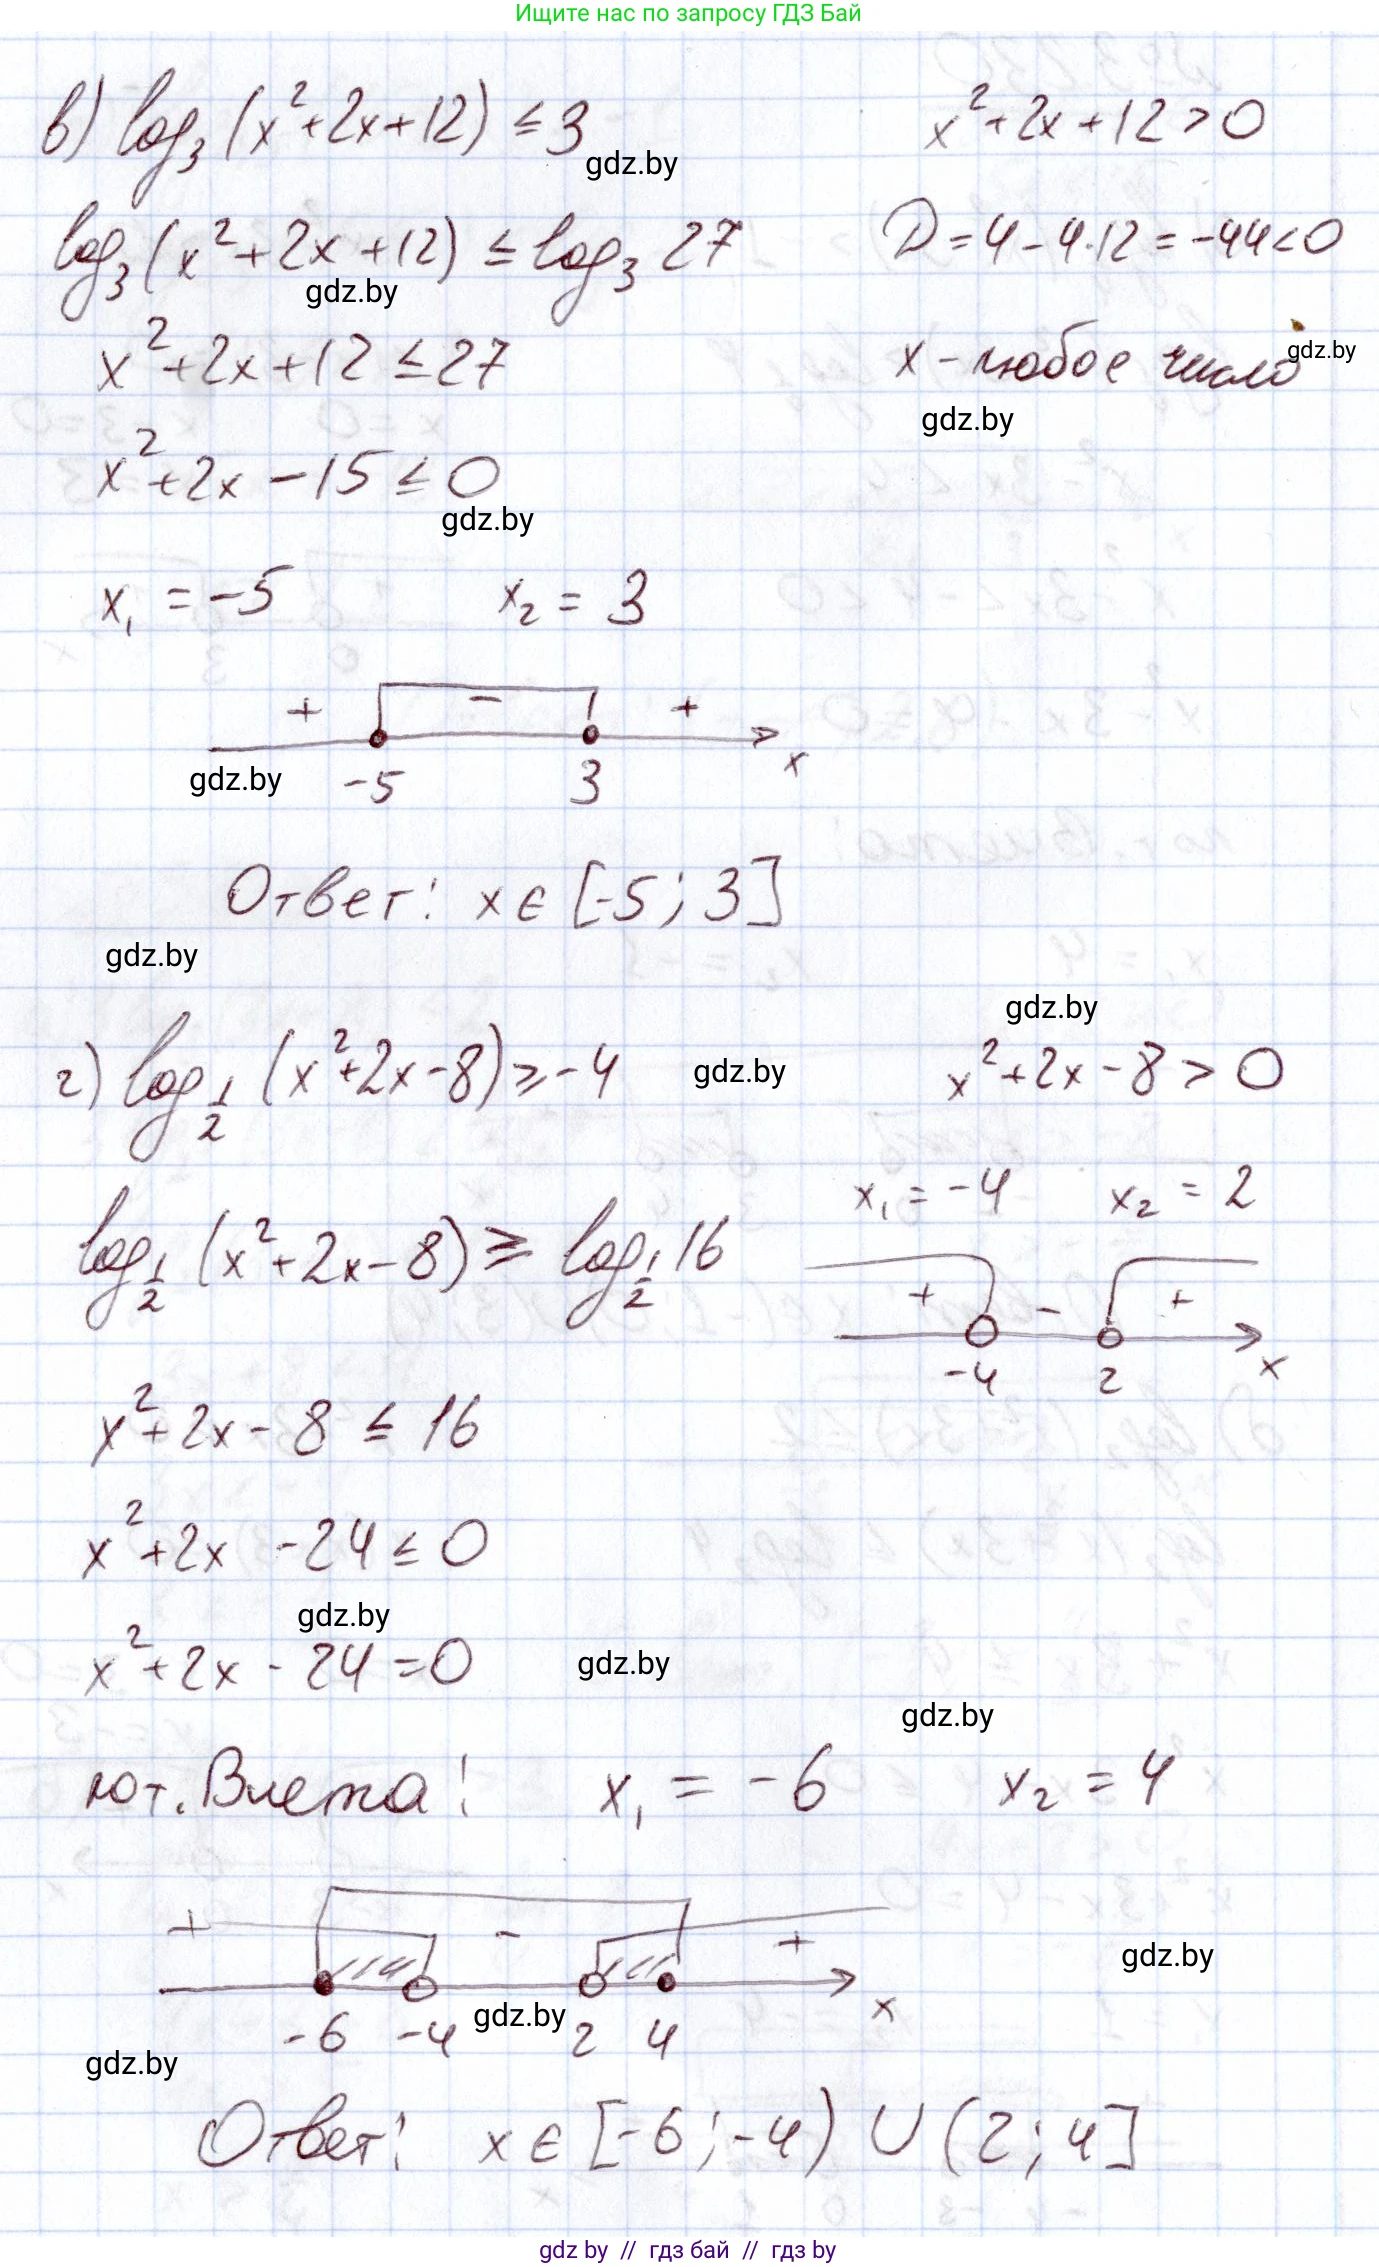 Ищите нас по запросу ГДЗ Бай
в) log₃(x²+2x+12) ≤ 3
x²+2x+12>0
gdz.by
log₃(x²+2x+12) ≤ log₃ 27
D=4-4·12=-44<0
gdz.by
x²+2x+12 ≤ 27
x - любое число
gdz.by
gdz.by
x²+2x-15 ≤ 0
gdz.by
x₁ = -5 x₂ = 3
+ - +
-5 3 x
gdz.by
Ответ: x ∈ [-5; 3]
gdz.by
gdz.by
г) log_{1/2}(x²+2x-8) ≥ -4
gdz.by
x²+2x-8>0
x₁ = -4 x₂ = 2
log_{1/2}(x²+2x-8) ≥ log_{1/2} 16
+ - +
-4 2 x
x²+2x-8 ≤ 16
x²+2x-24 ≤ 0
gdz.by
x²+2x-24=0
gdz.by
gdz.by
по т. Виета: x₁ = -6 x₂ = 4
+ - +
gdz.by
-6 -4 2 4 x
gdz.by
gdz.by
Ответ: x ∈ [-6; -4) ∪ (2; 4]
gdz by // гдз бай // гдз by